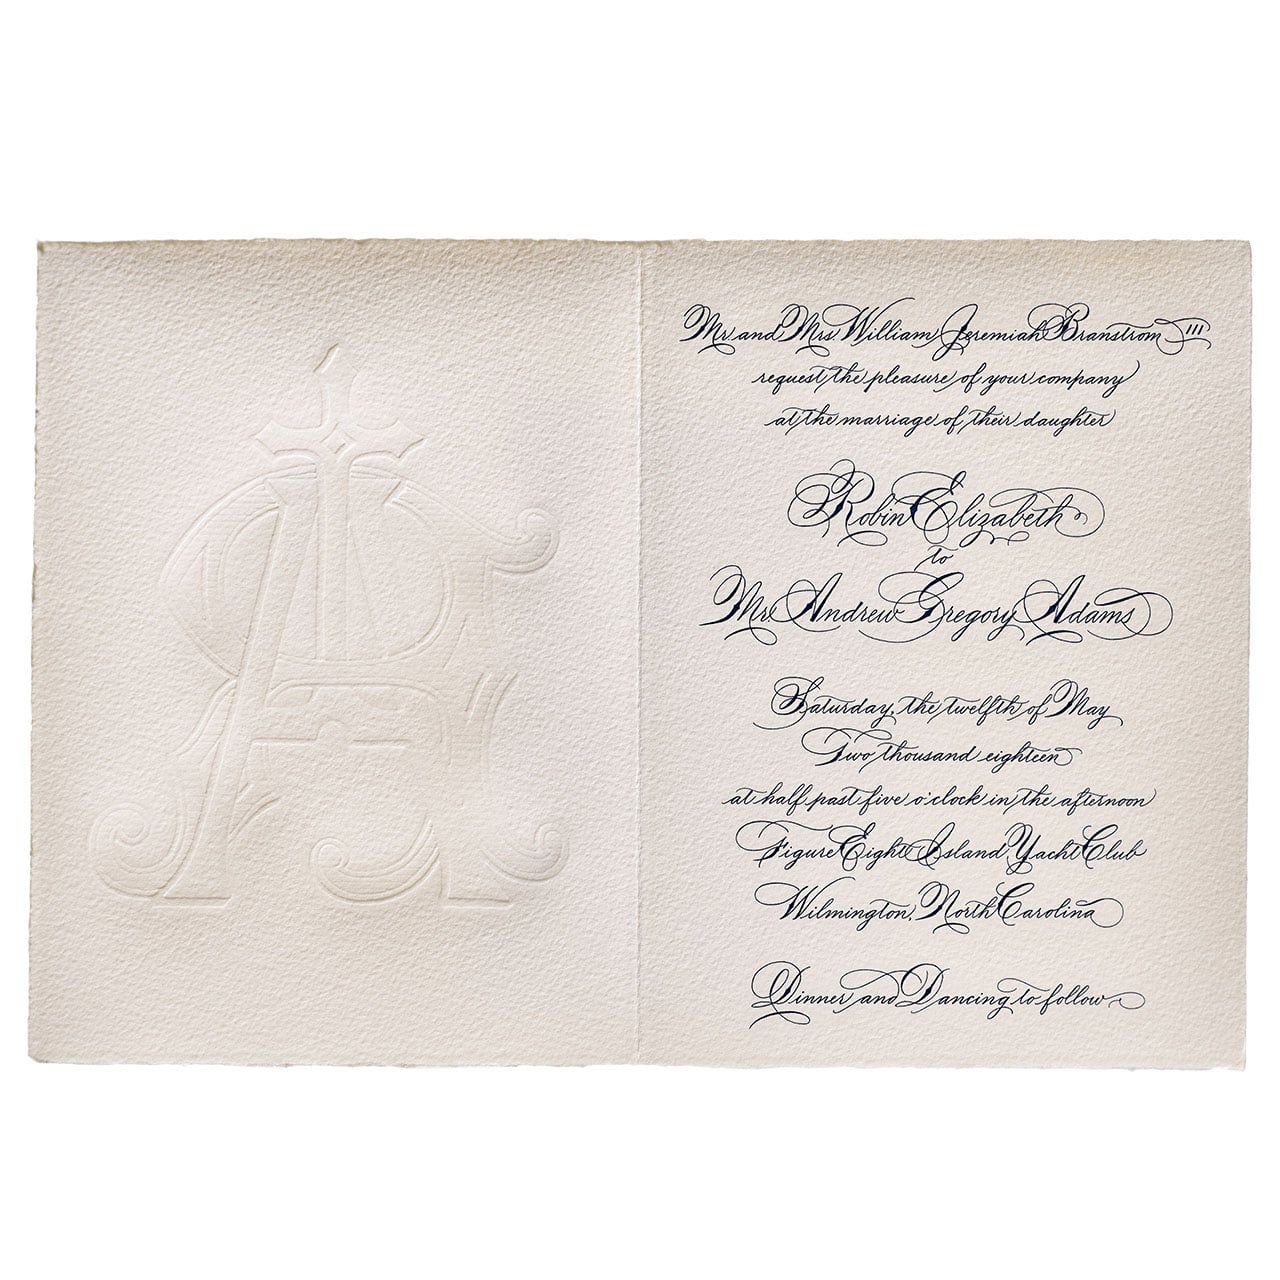 Mr. and Mrs. William Jeremiah Branstrom III
request the pleasure of your company
at the marriage of their daughter
Robin Elizabeth
to
Mr. Andrew Gregory Adams
Saturday, the twelfth of May
Two thousand eighteen
at half past five o'clock in the afternoon
Figure Eight Island Yacht Club
Wilmington, North Carolina
Dinner and Dancing to follow